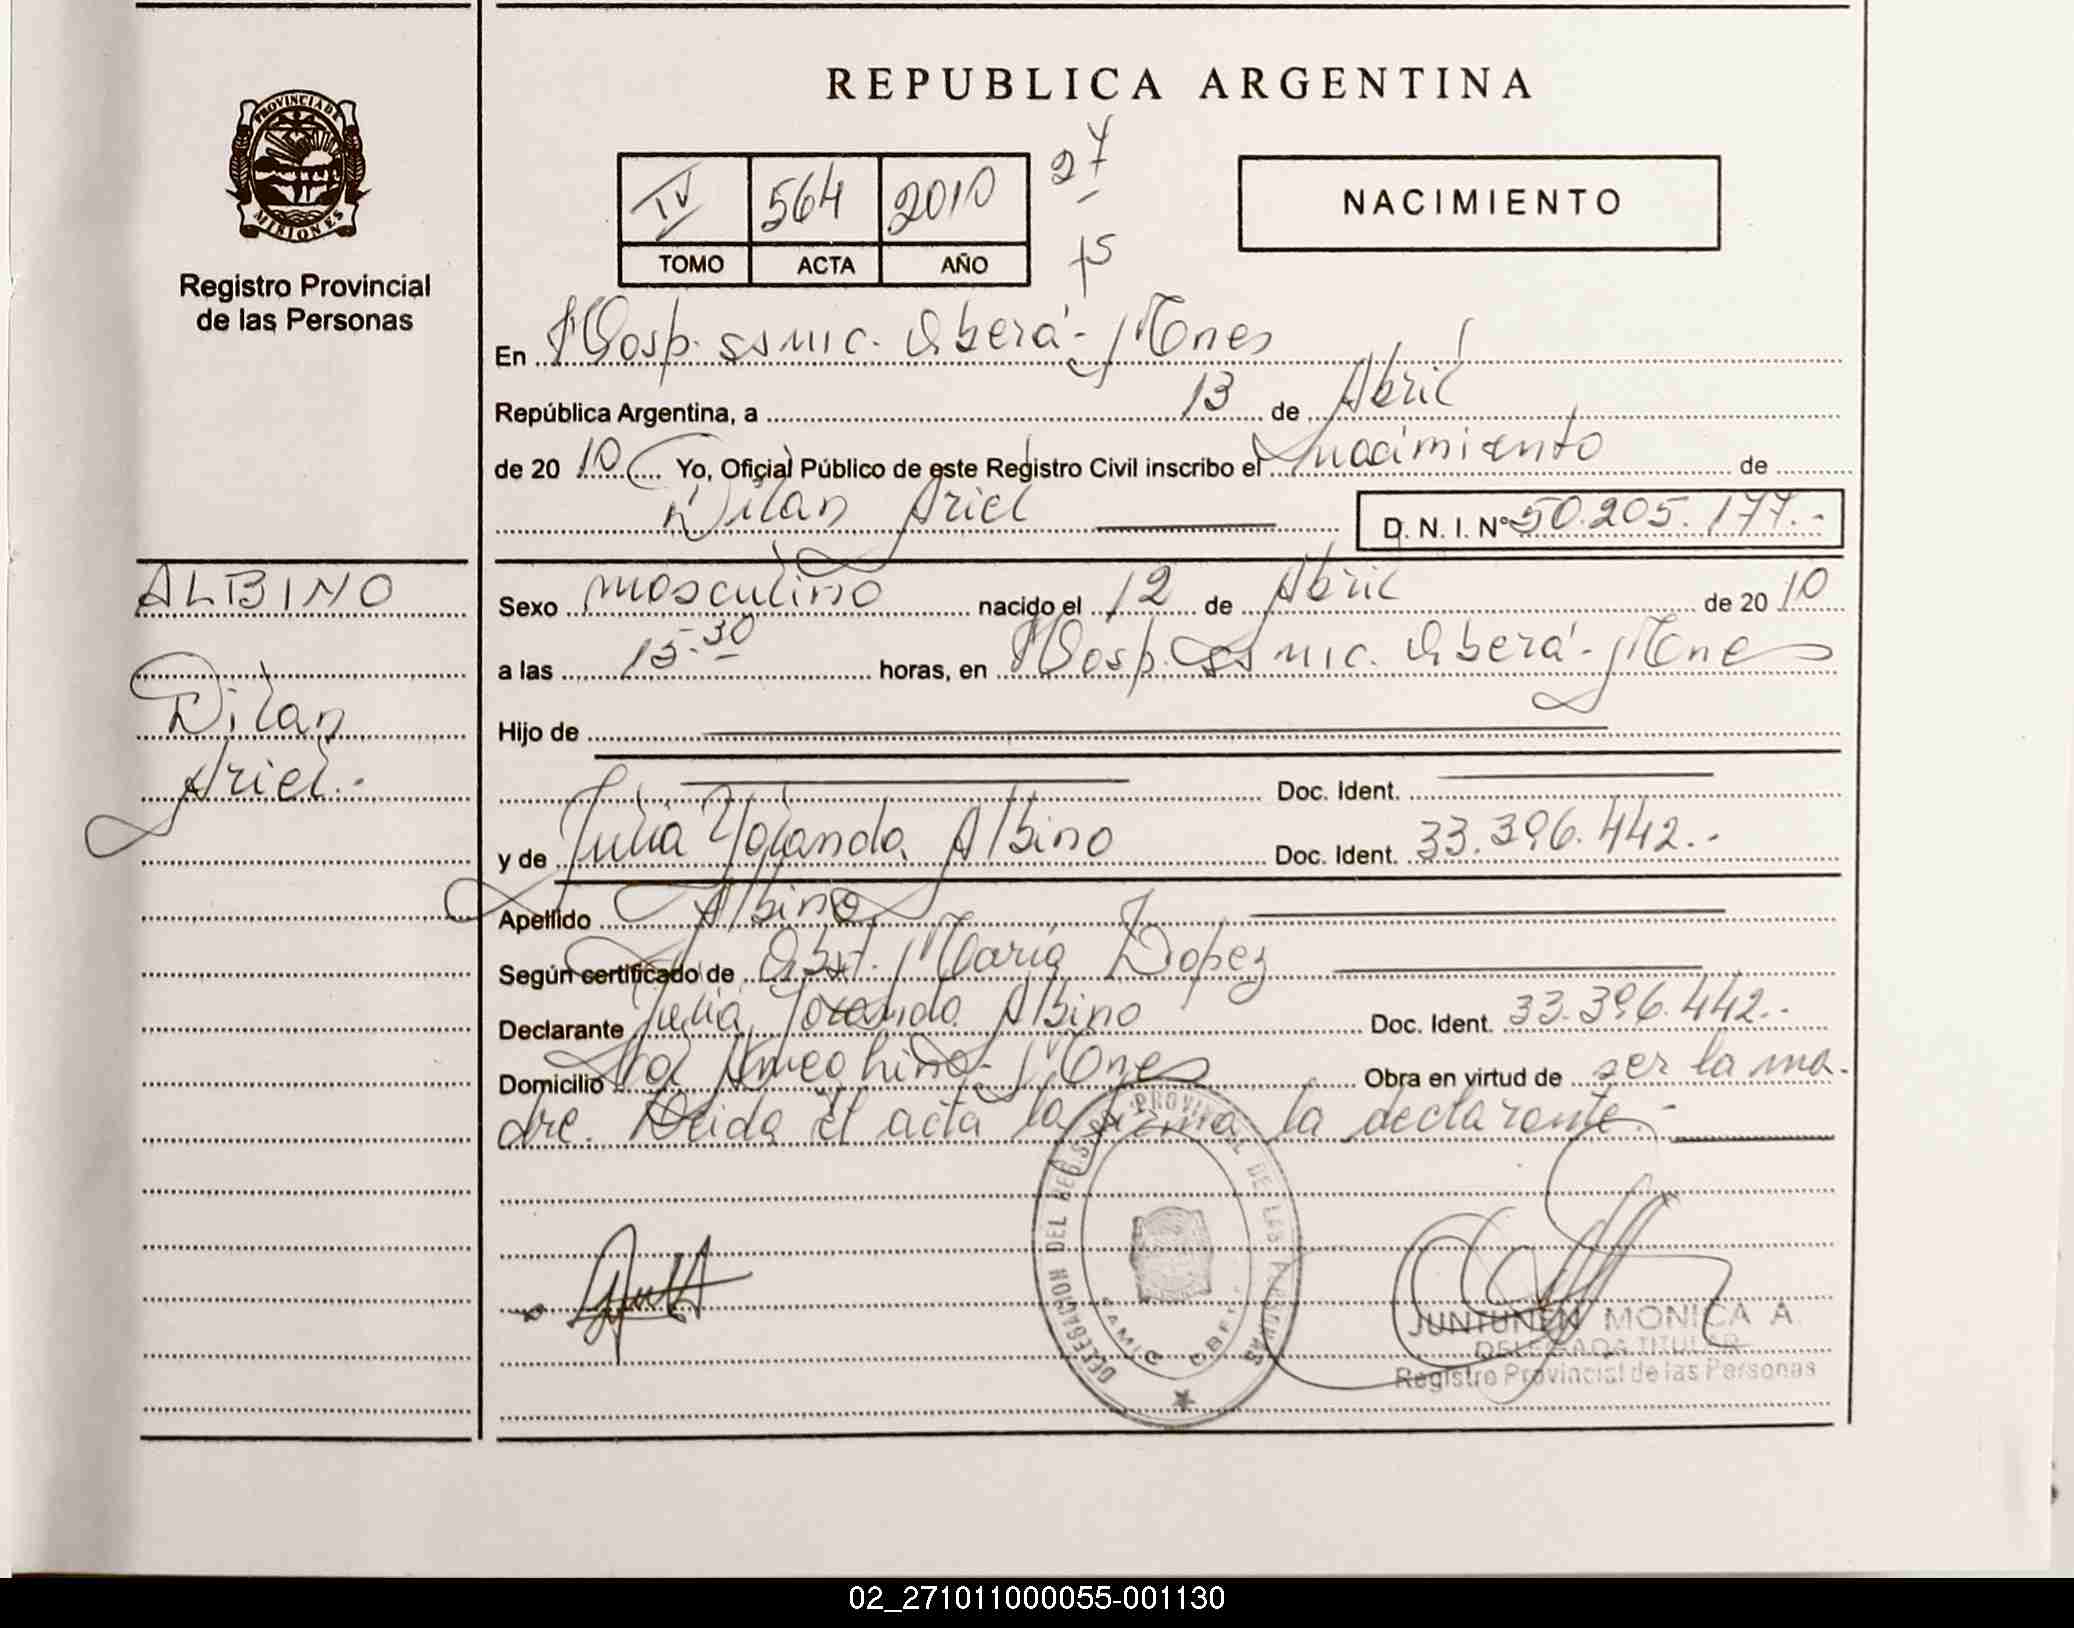 REPUBLICA ARGENTINA
PROVINCIA DE
MISIONES
Registro Provincial
de las Personas
IV 564 2010
TOMO ACTA AÑO
NACIMIENTO
En Hosp. ssmic. Oberá - Mnes
República Argentina, a 13 de Abril
de 2010 Yo, Oficial Público de este Registro Civil inscribo el nacimiento de
Dilan Ariel D. N. I. Nº 50.205.177.-
ALBINO
Dilan
Ariel.-
Sexo masculino nacido el 12 de Abril de 2010
a las 15.30 horas, en Hosp. ssmic. Oberá - Mnes
Hijo de
Doc. Ident.
y de Julia Yolanda Albino Doc. Ident. 33.396.442.-
Apellido Albino
Según certificado de Obst. María Lopez
Declarante Julia Yolanda Albino Doc. Ident. 33.396.442.-
Domicilio Ameghino - Mnes Obra en virtud de ser la ma-
dre. Leida el acta la firma la declarante.-
DELEGACION DEL REGISTRO PROVINCIAL DE LAS PERSONAS
JUNTUNEN MONICA A
DELEGADA TITULAR
Registro Provincial de las Personas
02_271011000055-001130